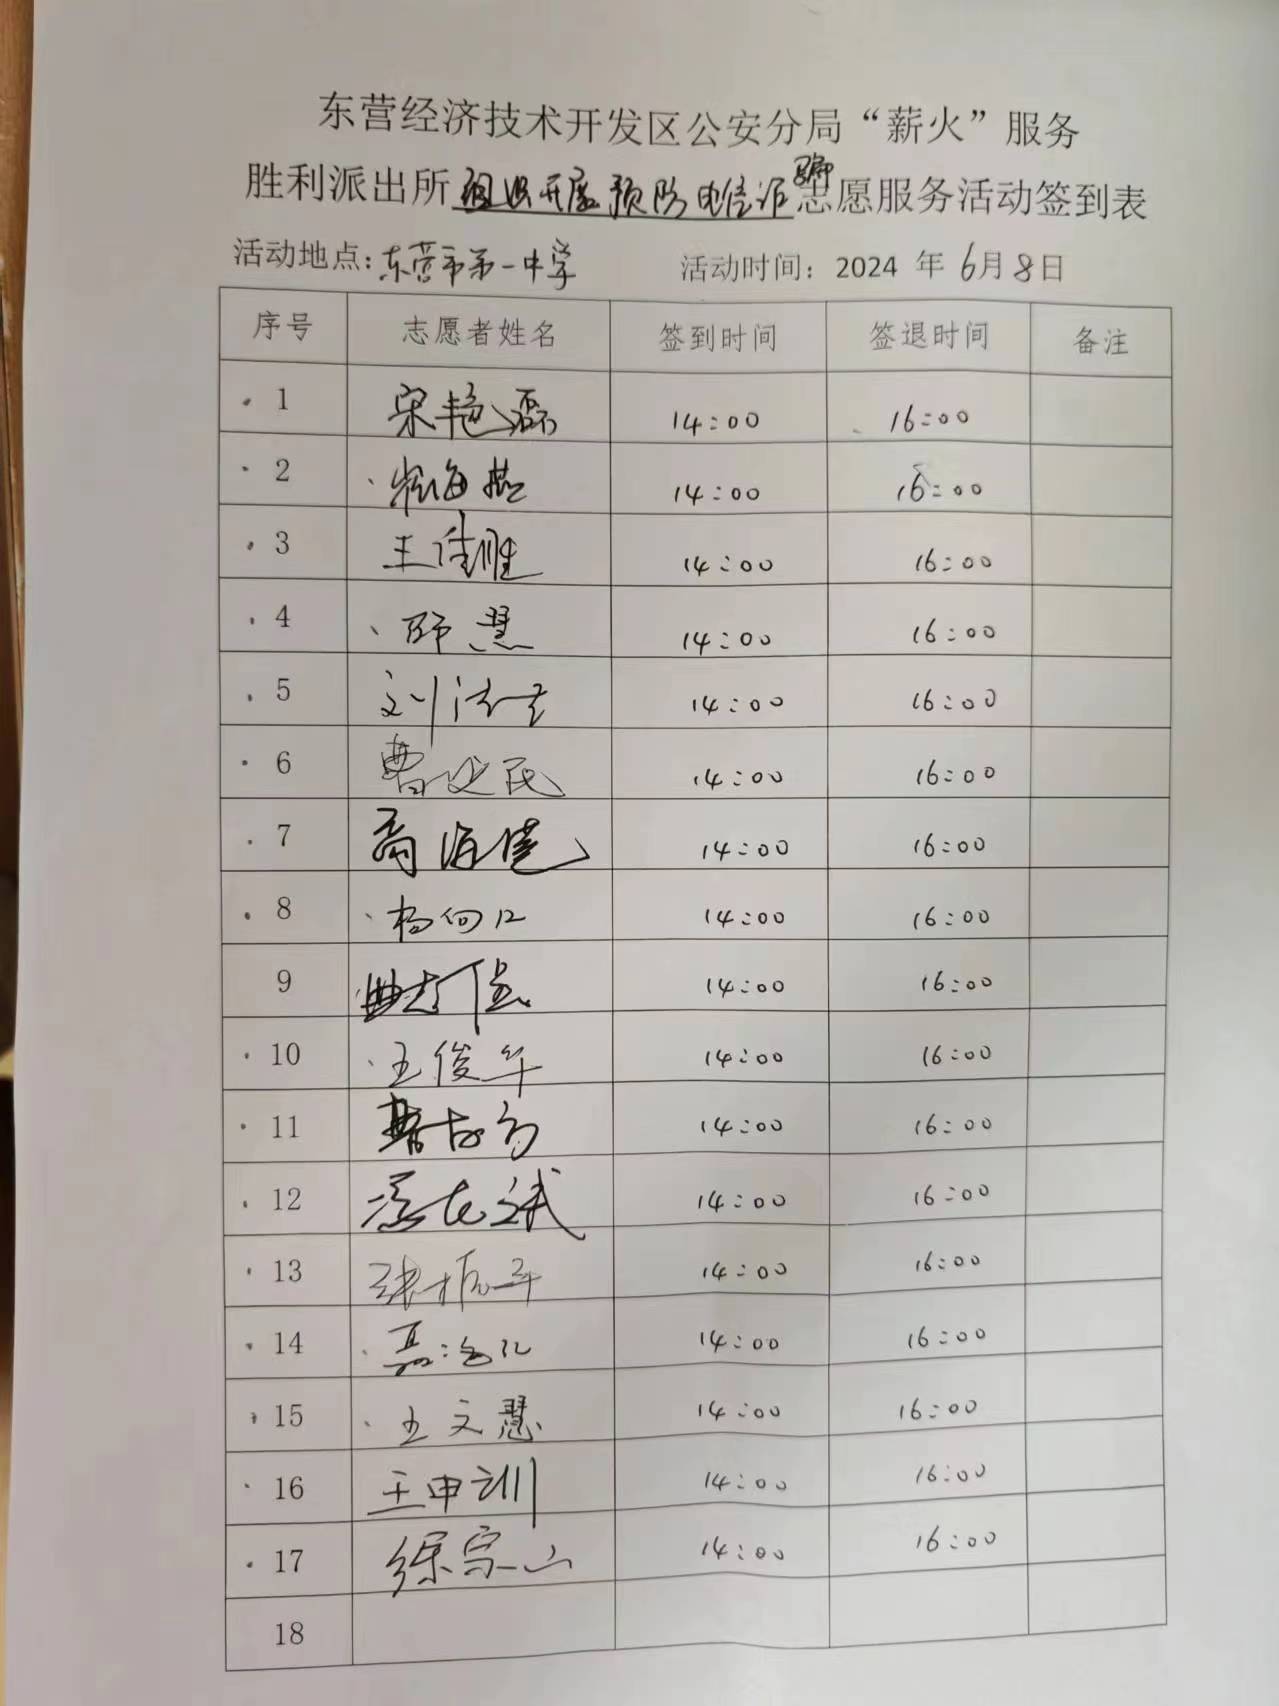 东营经济技术开发区公安分局“薪火”服务
胜利派出所组织开展预防电信诈骗志愿服务活动签到表
活动地点：东营市第一中学 活动时间：2024 年 6月8日
序号 志愿者姓名 签到时间 签退时间 备注
1 宋艳磊 14:00 16:00
2 海燕 14:00 16:00
3 王佳胜 14:00 16:00
4 师慧 14:00 16:00
5 刘 14:00 16:00
6 曹 民 14:00 16:00
7 商海 14:00 16:00
8 杨 14:00 16:00
9 曲志 14:00 16:00
10 王俊华 14:00 16:00
11 14:00 16:00
12 斌 14:00 16:00
13 张振军 14:00 16:00
14 聂 14:00 16:00
15 王文慧 14:00 16:00
16 王申训 14:00 16:00
17 徐宗山 14:00 16:00
18